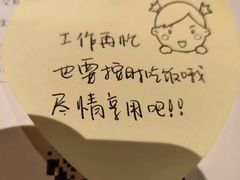 工作再忙
也要按时吃饭哦
尽情享用吧!!